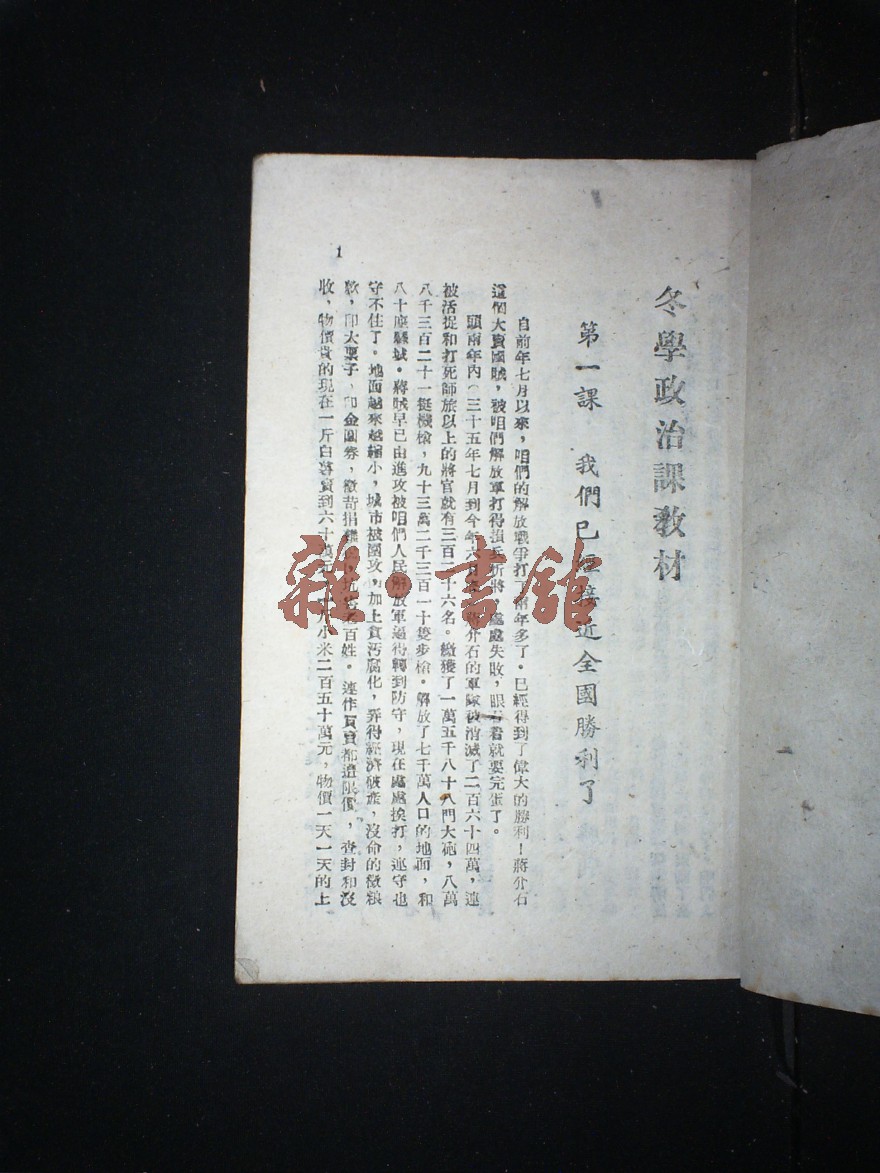 冬學政治課教材
第一課　我們已經接近全國勝利了
自前年七月以來，咱們的解放戰爭打了兩年多了。已經得到了偉大的勝利！蔣介石
這個大賣國賊，被咱們解放軍打得損兵折將，處處失敗，眼看着就要完蛋了。
頭兩年內（三十五年七月到今年六月 介石的軍隊被消滅了二百六十四萬，連
被活捉和打死師旅以上的將官就有三百二十六名。繳獲了一萬五千八十八門大砲，八萬
八千三百二十一挺機槍，九十三萬二千三百一十隻步槍。解放了七千萬人口的地面，和
八十座縣城。蔣賊早已由進攻被咱們人民解放軍逼得轉到防守，現在處處挨打，連守也
守不住了。地面越來越縮小，城市被圍攻，加上貪汚腐化，弄得經濟破產，沒命的徵粮
歛，印大票子，印金圓券，徵苛捐雜 百姓。連作買賣都遭限價，查封和沒
收，物價貴的現在一斤白薯賣到六十萬元 小米二百五十萬元，物價一天一天的上
1
雜·書館